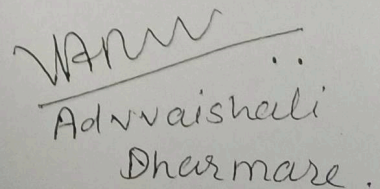 Advvaishali
Dharmare.